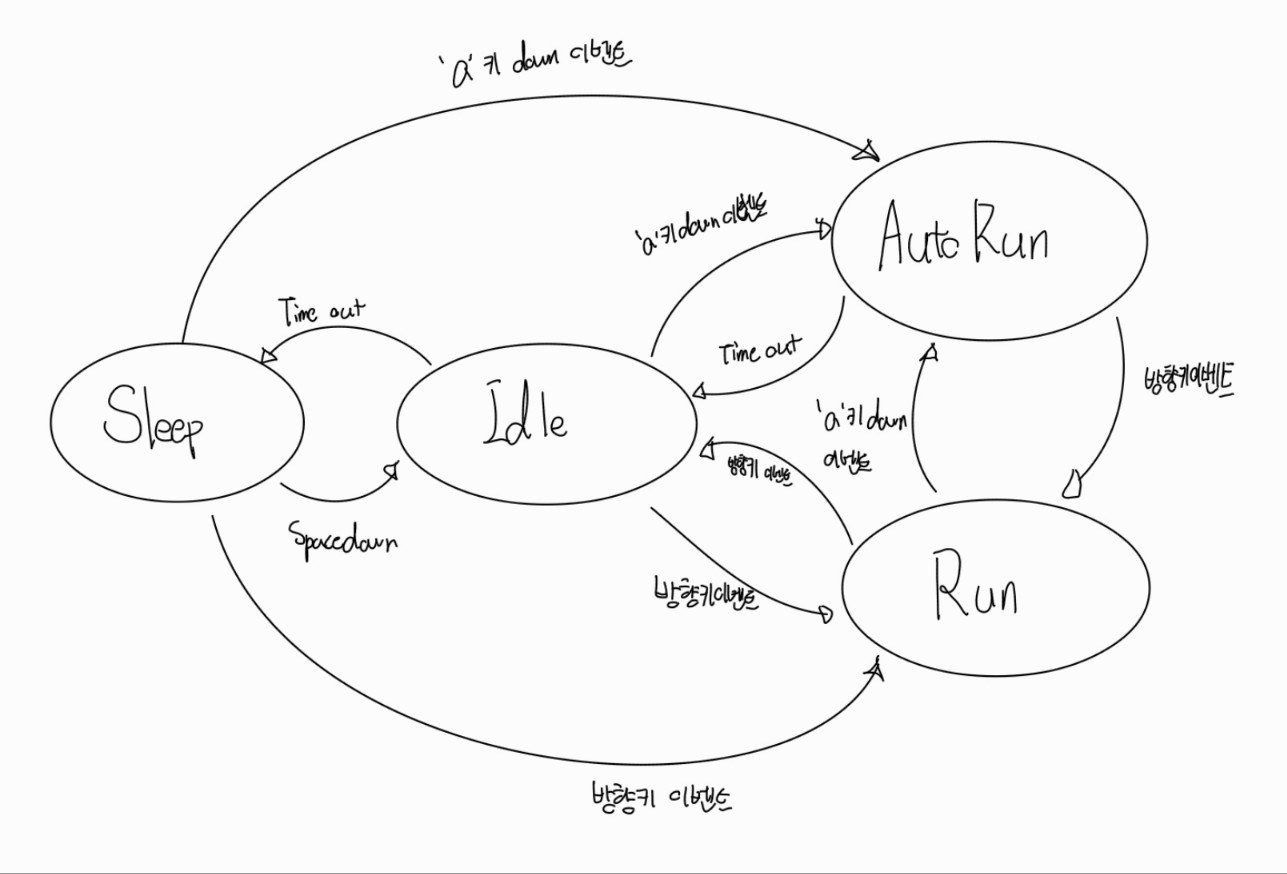 'a' 키 down 이벤트
'a'키down이벤트
Auto Run
Time out
Time out
방향키이벤트
Sleep
Idle
'a'키down
이벤트
방향키 이벤트
Spacedown
방향키이벤트
Run
방향키 이벤트